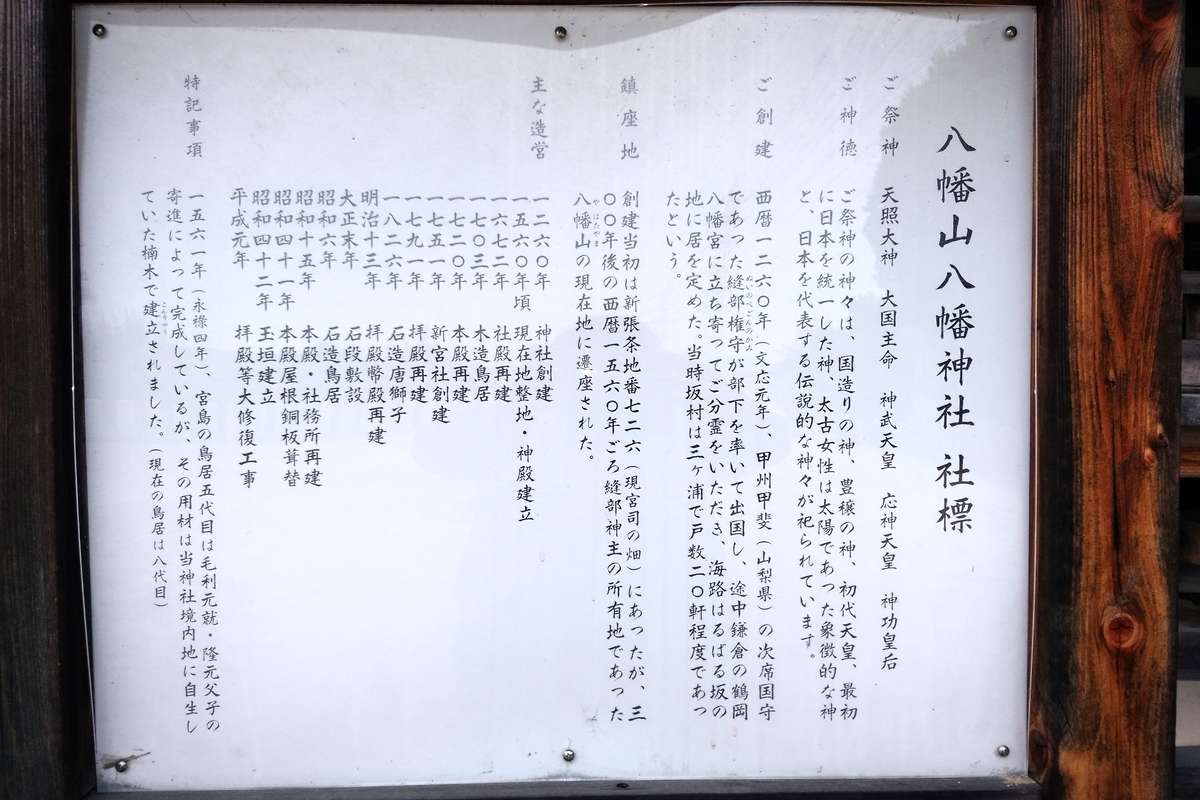 八幡山八幡神社 社標
ご祭神 天照大神 大国主命 神武天皇 応神天皇 神功皇后
ご神徳 ご祭神の神々は、国造りの神、豊穣の神、初代天皇、最初
に日本を統一した神、太古女性は太陽であった象徴的な神
と 日本を代表する伝説的な神々が祀られています。
ご創建 西暦一二六〇年（文応元年）、甲州甲斐（山梨県）の次席国守
であった縫部権守が部下を率いて出国し、途中鎌倉の鶴岡
八幡宮に立ち寄ってご分霊をいただき、海路はるばる坂の
地に居を定めた。当時坂村は三ヶ浦で戸数二〇軒程度であっ
たという。
鎮座地 創建当初は新張条地番七二六（現宮司の畑）にあったが、三
〇〇年後の西暦一五六〇年ごろ縫部神主の所有地であった
八幡山の現在地に遷座された。
やはたやま
主な造営 一二六〇年 神社創建
一五六〇年頃 現在地整地・神殿建立
一六七二年 社殿再建
一七〇三年 木造鳥居
一七二〇年 本殿再建
一七五一年 新宮社創建
一七九一年 拝殿再建
一八二六年 石造唐獅子
明治十三年 拝殿幣殿再建
大正末年 石段敷設
昭和六年 石造鳥居
昭和十五年 本殿・社務所再建
昭和四十一年 本殿屋根銅板葺替
昭和四十二年 玉垣建立
平成元年 拝殿等大修復工事
特記事項 一五六一年（永禄四年）、宮島の鳥居五代目は毛利元就・隆元父子の
寄進によって完成しているが、その用材は当神社境内地に自生し
ていた楠木で建立されました。（現在の鳥居は八代目）